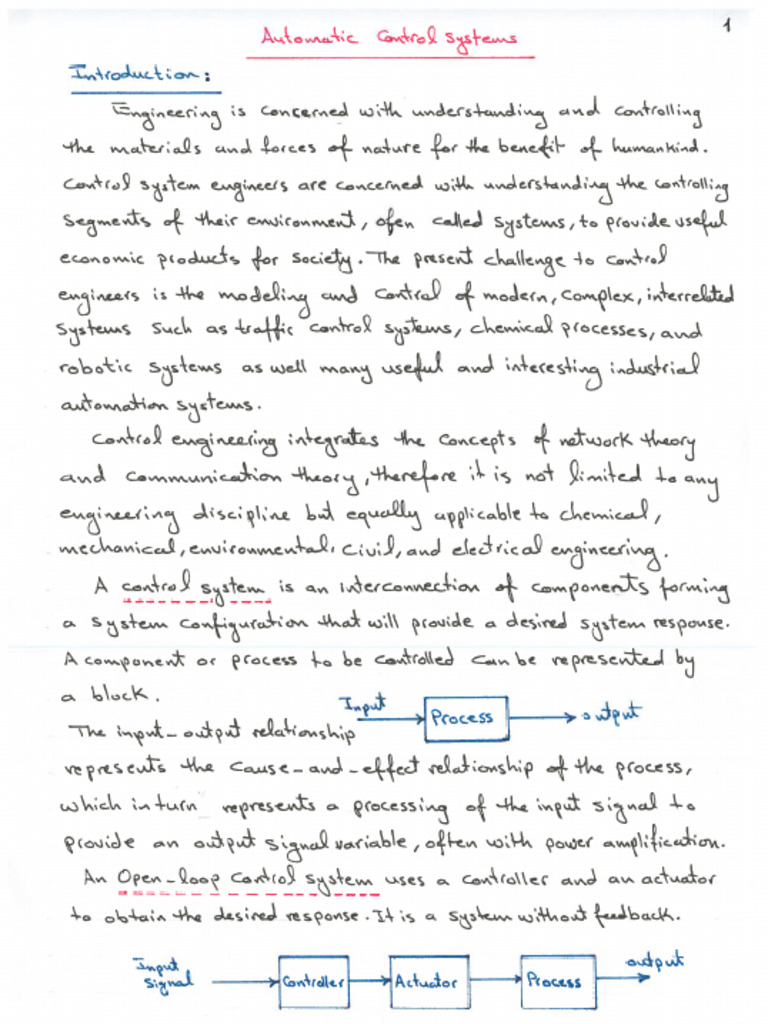 1
Automatic Control Systems
Introduction:
Engineering is concerned with understanding and controlling
the materials and forces of nature for the benefit of humankind.
Control system engineers are concerned with understanding the controlling
segments of their environment, ofen called systems, to provide useful
economic products for society. The present challenge to control
engineers is the modeling and control of modern, complex, interrelated
systems such as traffic control systems, chemical processes, and
robotic systems as well many useful and interesting industrial
automation systems.
Control engineering integrates the concepts of network theory
and communication theory, therefore it is not limited to any
engineering discipline but equally applicable to chemical,
mechanical, environmental, civil, and electrical engineering.
A control system is an interconnection of components forming
a system configuration that will provide a desired system response.
A component or process to be controlled can be represented by
a block.
Input Process output
The input-output relationship
represents the cause-and-effect relationship of the process,
which in turn represents a processing of the input signal to
provide an output signal variable, often with power amplification.
An Open-loop control system uses a controller and an actuator
to obtain the desired response. It is a system without feedback.
Input output
Signal Controller Actuator Process